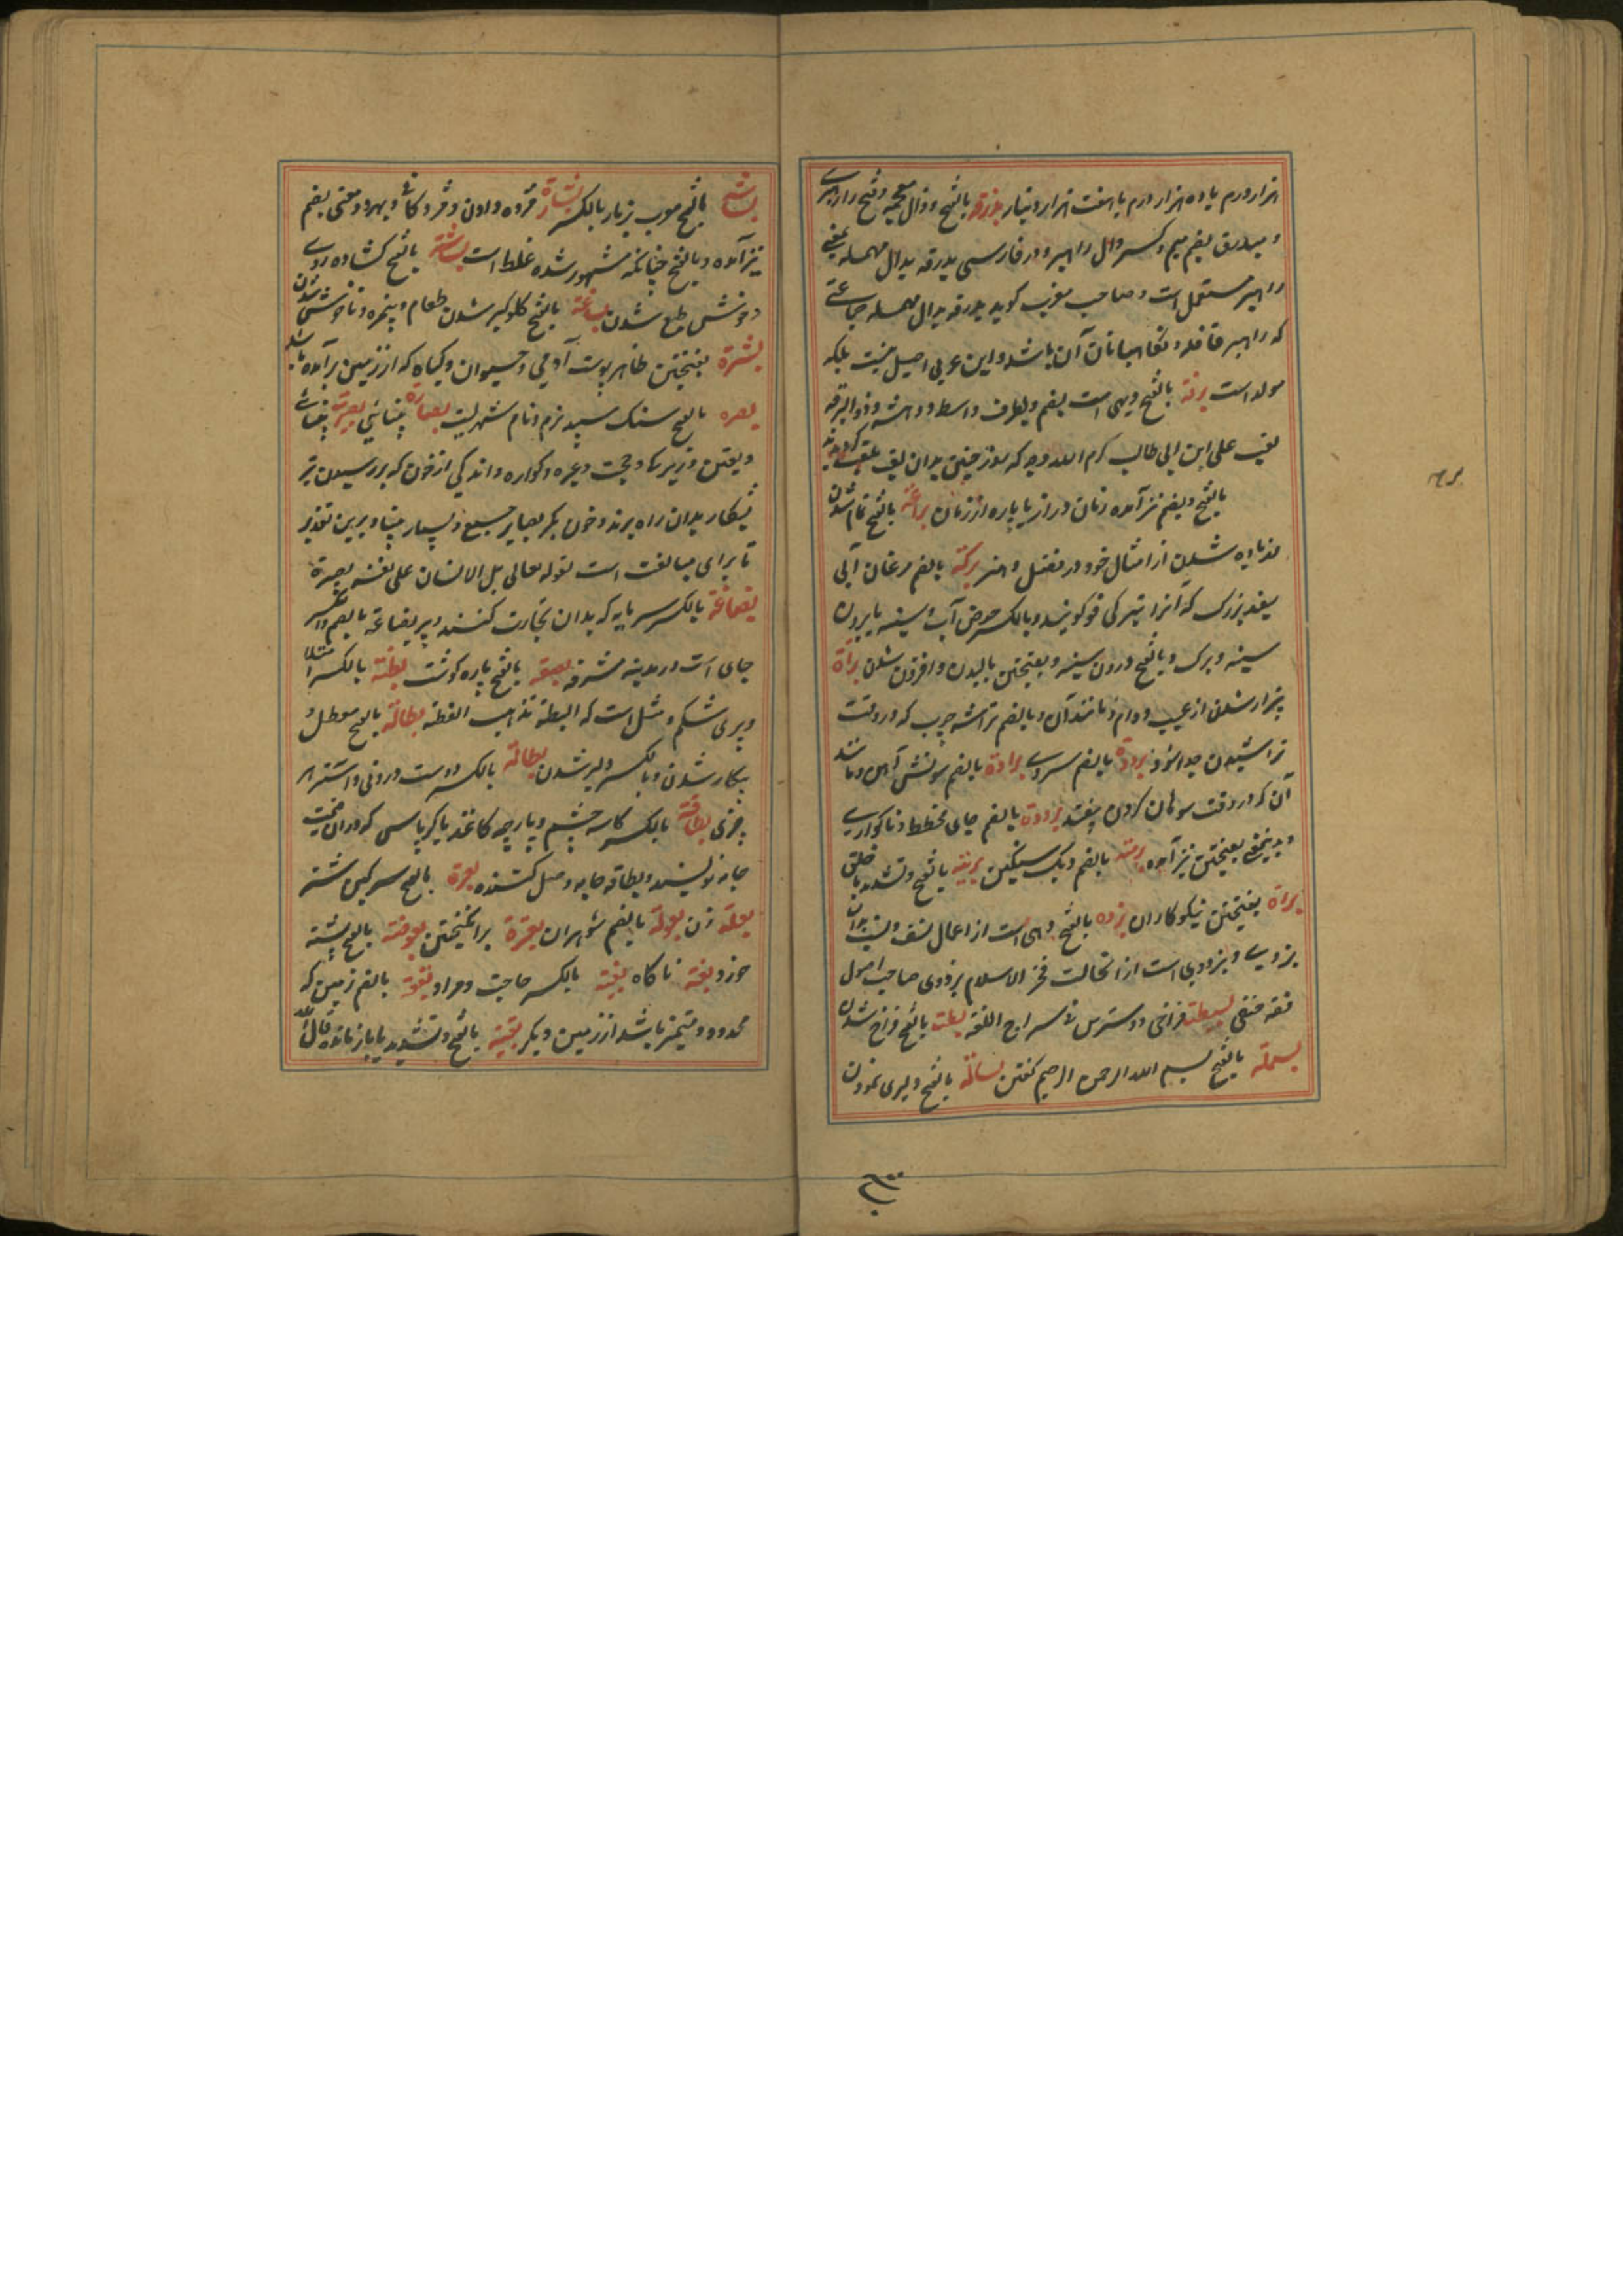 هزار درم یا ده هزار درم یا هفت هزار دینار بذرقه بالفتح و ذال معجمه و فتح را رهبری
و مبذرق بضم میم و کسر دال راهبر و در فارسی بدرقه بدال مهمله بمعنی
راهبر مستعمل است و صاحب مغرب کوید بدرقه بدال مهمله جماعتی
که راهبر قافله و نکاهبانان آن باشد و این عربی اصیل نیست بلکه
مولد است برقه بالفتح دیهی است بقم و بطرف واسط و دهشه و ذو البرقه
لقب علی ابن ابی طالب کرم الله وجهه که روز حنین بدان لقب ملقب کردیدند
بالفتح و بضم نیز آمده زمان دراز یا پاره از زمان براعة بالفتح تمام شدن
و زیاده شدن از امثال خود در فضل و هنر برکة بالضم مرغان آبی
سفید بزرک که آنرا بترکی قو کویند و بالکسر حوض آب و سینه یا برون
سینه و برک و بالفتح درون سینه و بفتحتین بالیدن و افزون شدن براة
بیزار شدن از عیب و وام و مانند آن و بالضم تراشه چوب که در وقت
تراشیدن جدا شود برودة بالضم سردی برادة بالضم سونش آهن و مانند
آن که در وقت سوهان کردن بیفتد بالضم جای
و بدینمعنی بفتحتین نیز آمده برمة بالضم دیک سنکین بریة بالفتح و تشدید یا خلق
براة بفتحتین نیکوکاران بزده بالفتح دهی است از اعمال نسف
بزدی و بزدوی است از انجاست فخر الاسلام بزدوی صاحب اصول
فقه حنفی بسطت فراخی و دسترس فی سراج اللغة بالفتح فراخ شدن
بسملة بالفتح بسم الله الرحمن الرحیم کفتن بسالة بالفتح دلیری نمودن
برح
بالفتح بشارة بالکسر مژده دادن و مژدکانی و بهر دو معنی بضم
نیز آمده و بالفتح چنانکه مشهور شده غلط است بشاشة بالفتح کشاده روی
و خوش طبع شدن بشاعة بالفتح کلوکیر شدن طعام و بیمزه و ناخوش شدن
بشرة بفتحتین ظاهر پوست آدمی و حیوان و کیاه که از زمین برآمده باشد
بصره بالفتح سنک سپید نرم و نام شهریست بصارة بینائی بصیرت بینائی
و یقین و زیرکی و حجت و عبره و کواره و اندکی از خون که بر رسیدن تیر
بشکار بدان راه برند و خون بکر بصایر جمع و بسیار بینا و برین تقدیر
تا برای مبالغت است قوله تعالی بل الانسان علی نفسه بصیرة
بضاعة بالکسر سرمایه که بدان تجارت کنند و بیر بضاعة بالضم والکسر
جای است در مدینه مشرفه بضعة بالفتح پاره کوشت بطنة بالکسر امتلا
و پری شکم و مثل است که البطنة تذهب الفطنة بطالة بالفتح معطل و
بیکار شدن و بالکسر دلیر شدن بطانة بالکسر دوست درونی و استر هر
چیزی بطاقة بالکسر کاسه چشم و پارچه کاغذ یا کرباسی که در ان قیمت
جامه نویسند و بطاقه جامه وصل کننده بعرة بالفتح سرکین شتر
بعلة زن بعولة بالضم شوهران بعثرة برانکیختن بعوضة بالفتح پشه
خرد بغتة ناکاه بغیة بالکسر حاجت و مراد بقعة بالضم زمین که
محدود و متمیز باشد از زمین دیکر بقیة بالفتح و تشدید یا باز مانده قال الله